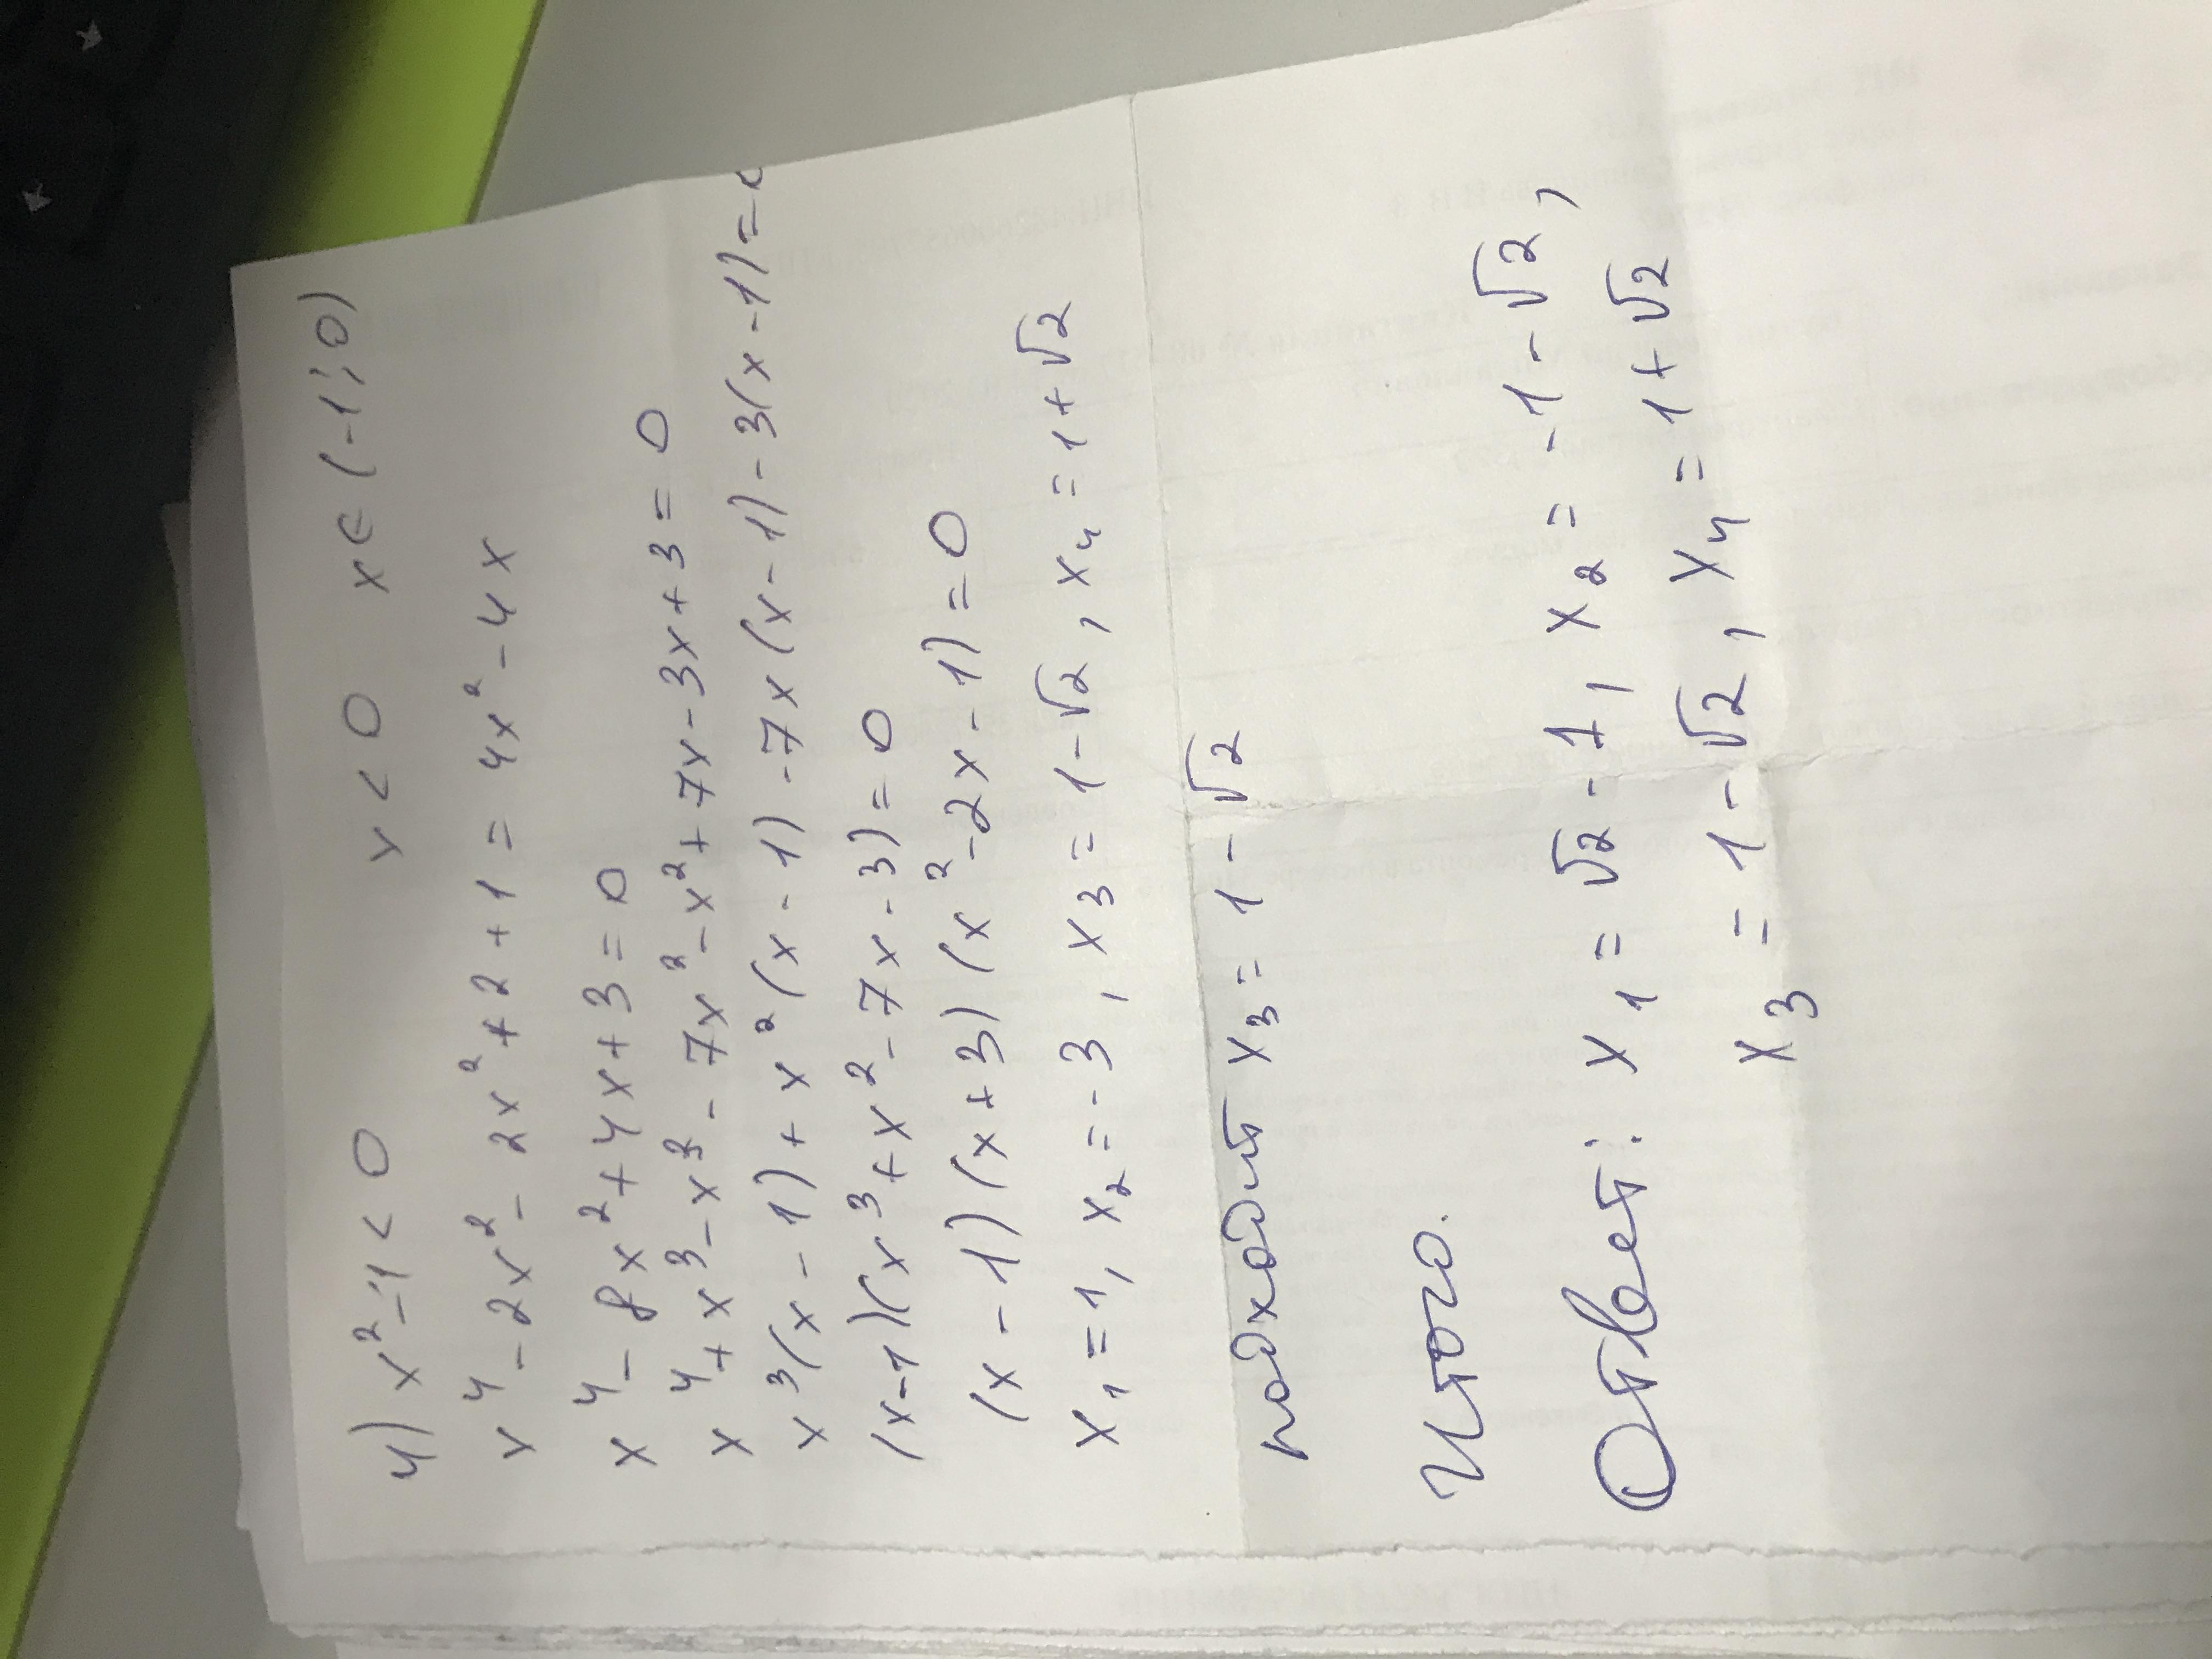 4) x²-1<0 x<0 x∈(-1;0)
x⁴-2x²-2x²+2+1=4x²-4x
x⁴-8x²+4x+3=0
x⁴+x³-x³-7x²-x²+7x-3x+3=0
x³(x-1)+x²(x-1)-7x(x-1)-3(x-1)=0
(x-1)(x³+x²-7x-3)=0
(x-1)(x+3)(x²-2x-1)=0
x₁=1, x₂=-3, x₃=1-√2, x₄=1+√2
подходит x₃=1-√2
Итого.
Ответ: x₁=√2-1, x₂=-1-√2,
x₃=1-√2, x₄=1+√2